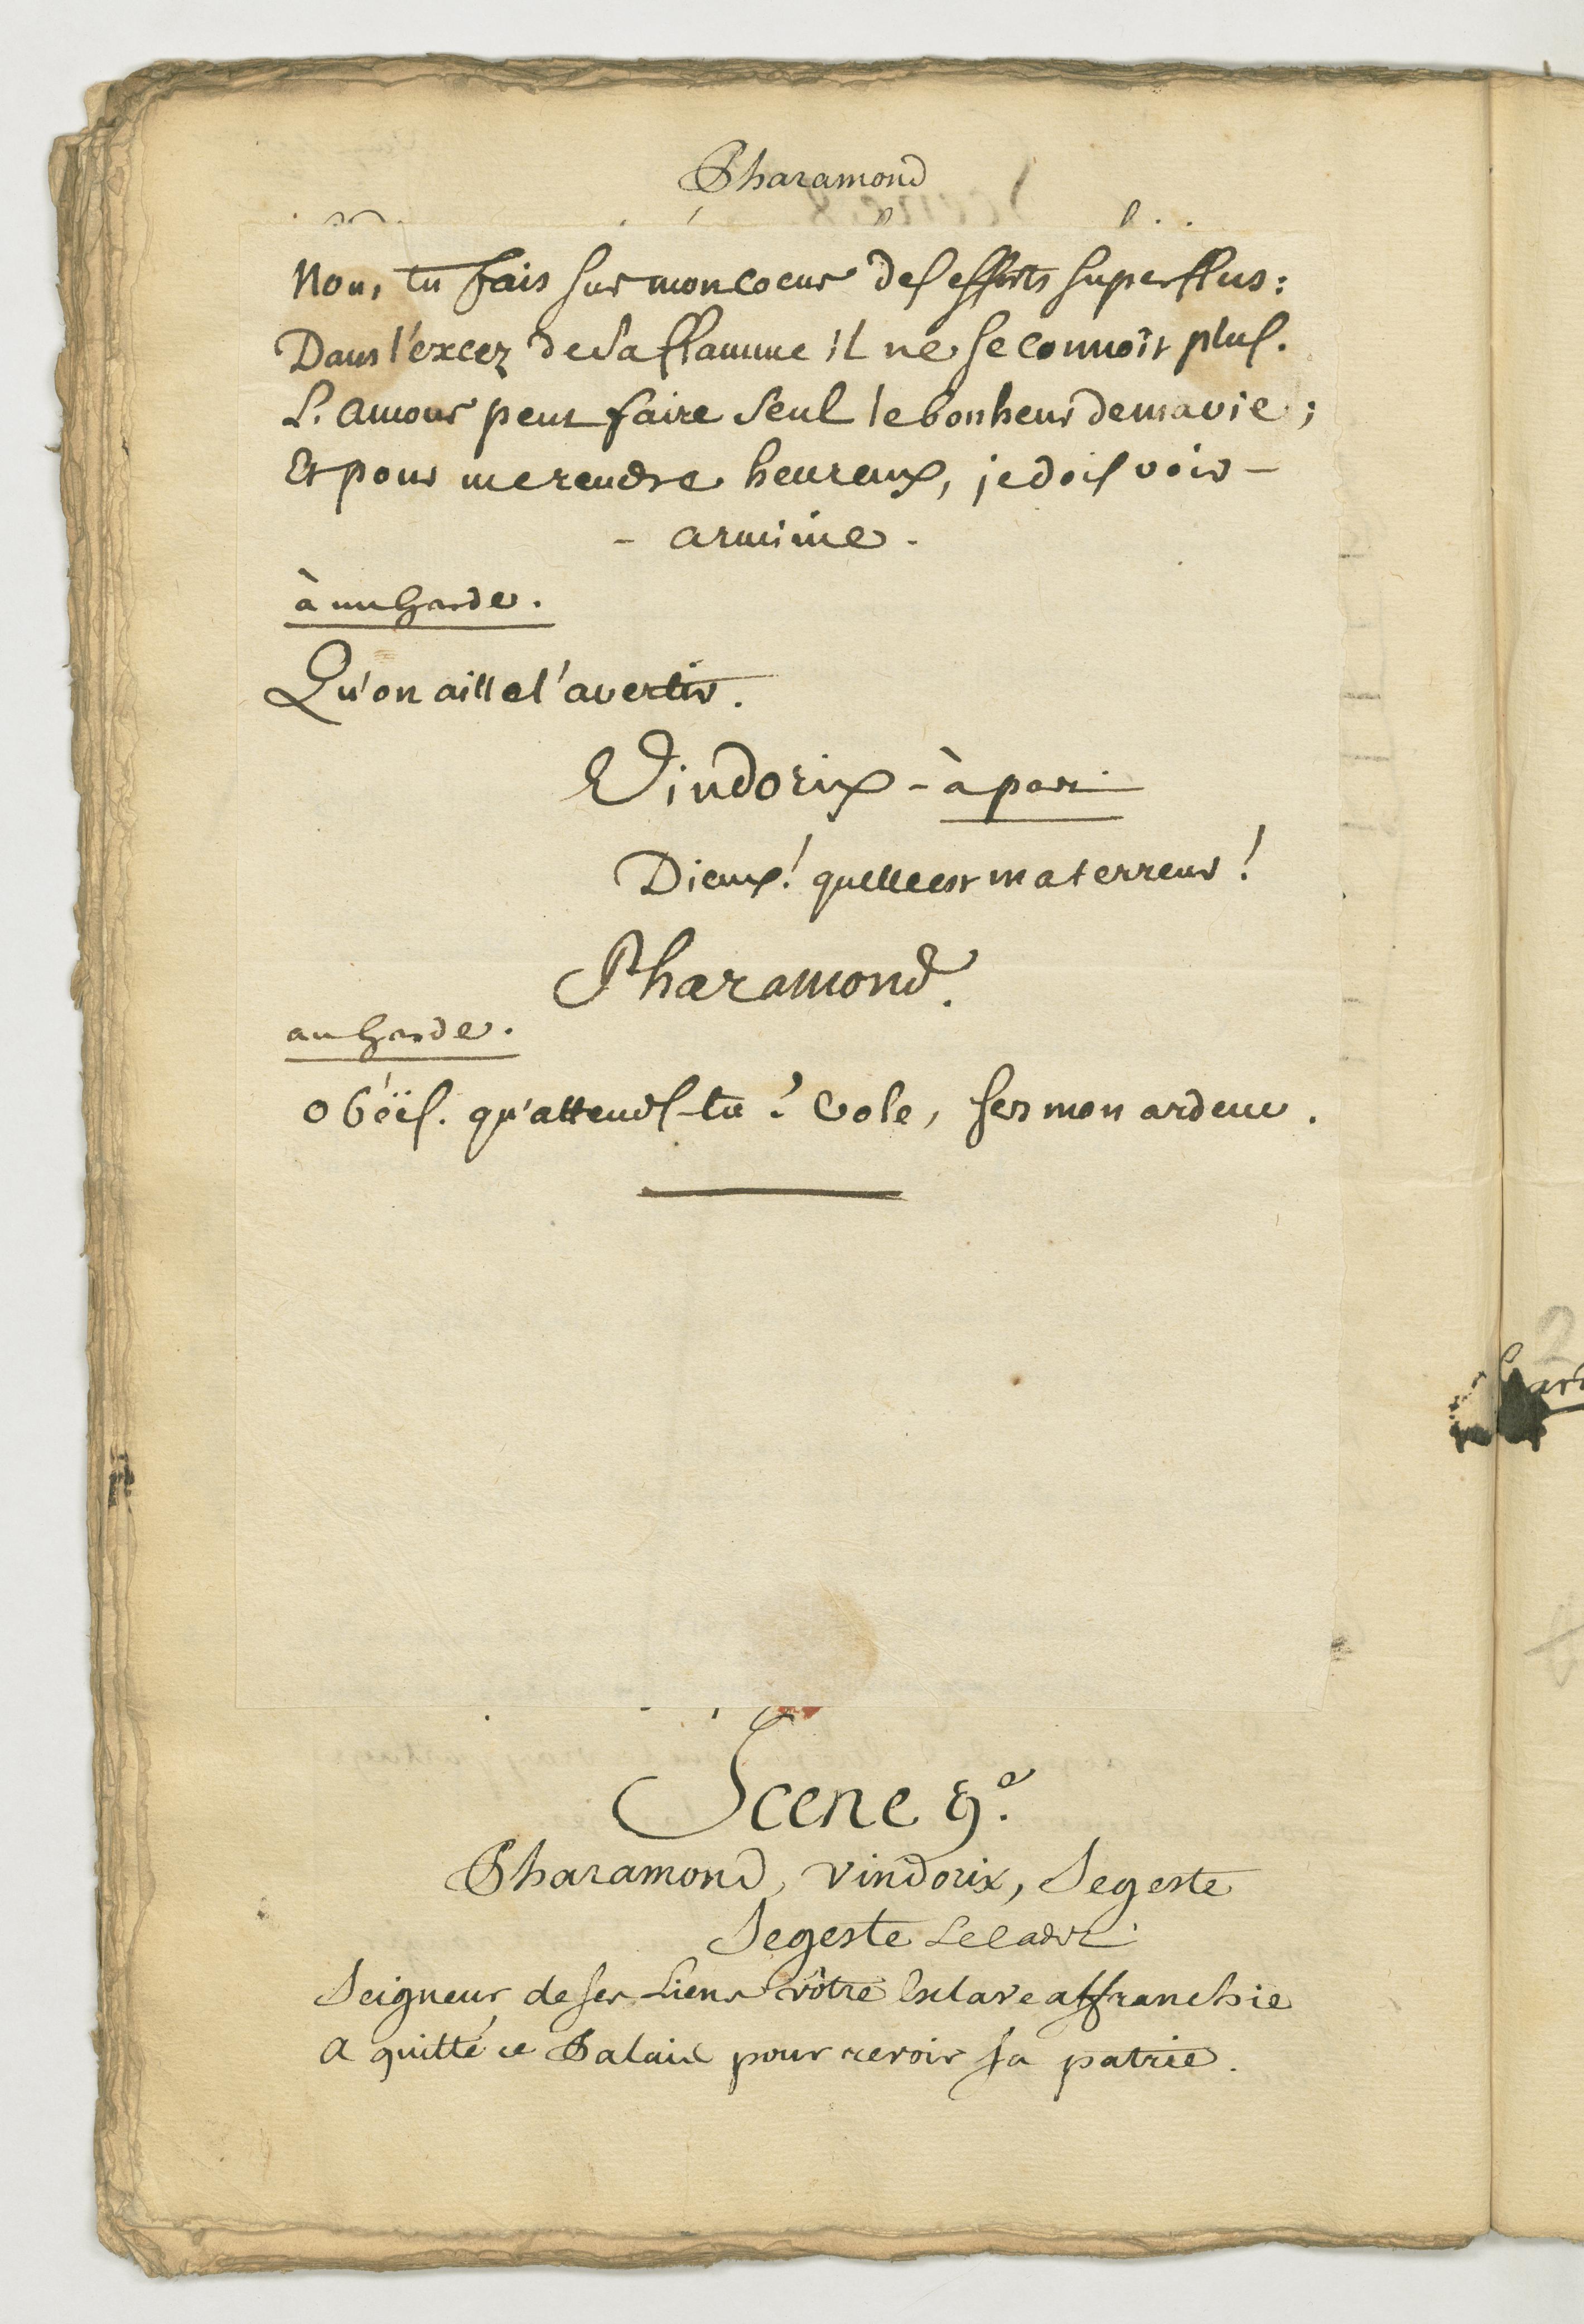 Pharamond
Non, tu fais sur mon coeur des efforts superflus:
Dans l'excez de sa flamme il ne se connoît plus.
L'amour peut faire seul le bonheur de ma vie;
Et pour me rendre heureux, je dois voir -
- arminie.
à un Garde.
Qu'on aille l'avertir.
Vindorix - à part
Dieux! quelle est ma terreur!
Pharamond.
au Garde.
obéïs. qu'attends-tu? Vole, sers mon ardeur.
Scene 9e.
Pharamond, Vindorix, Segeste
Segeste
Seigneur, de ses Liens vôtre Esclave affranchie
a quitté ce Palais pour revoir sa patrie.